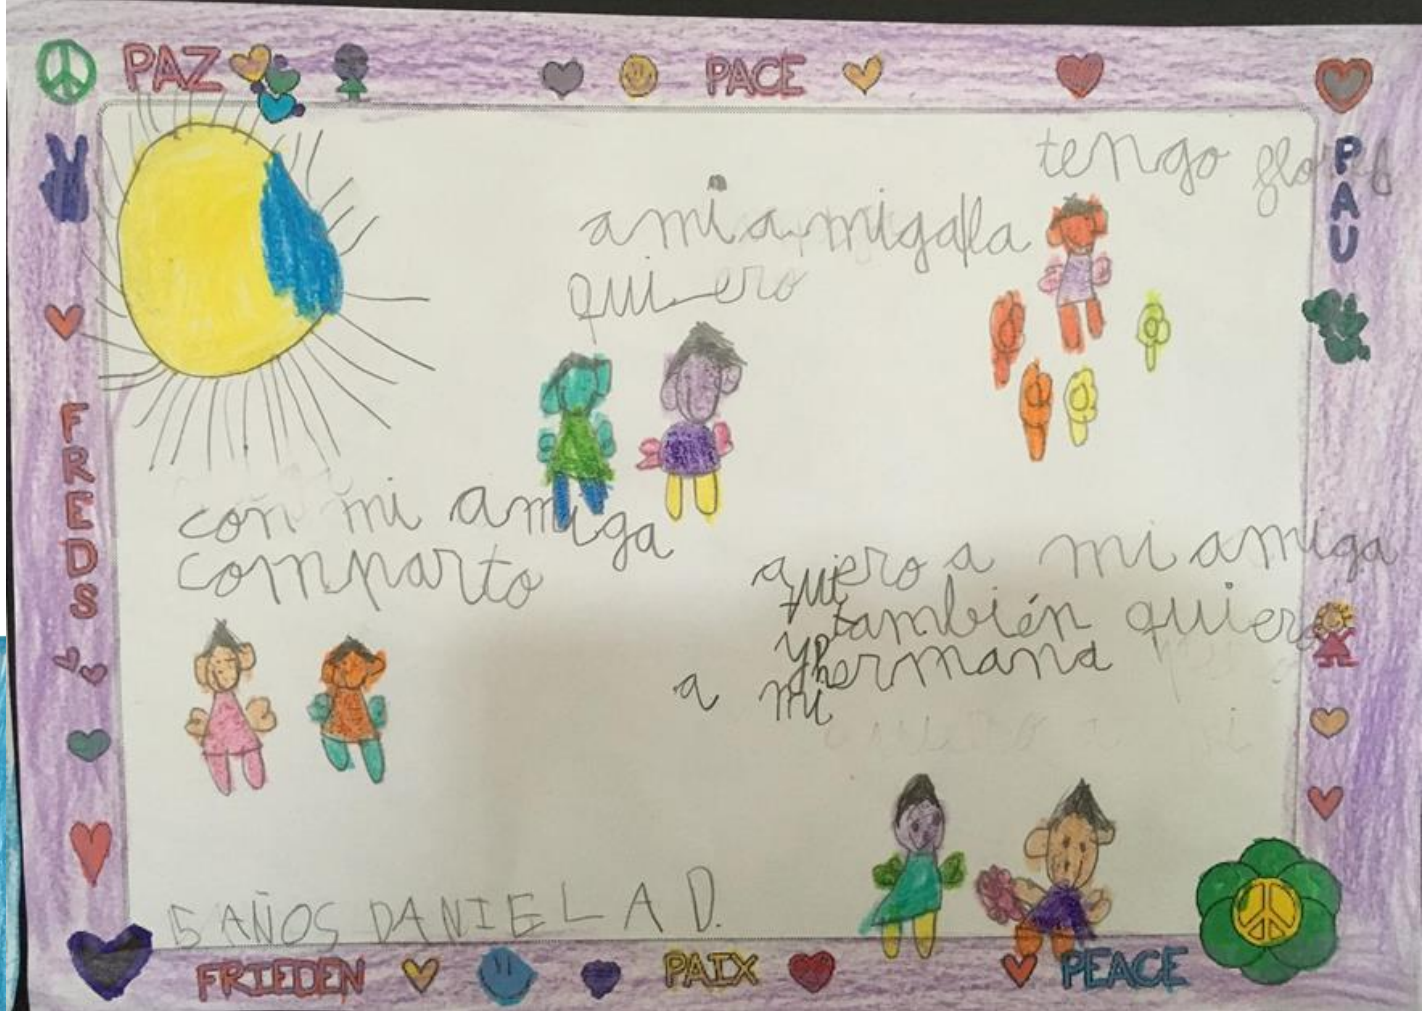 PAZ
PACE
PAU
FREDS
tengo flores
a mi amiga la
quiero
con mi amiga
comparto
quiero a mi amiga
y también quiero
a mi hermana
5 AÑOS DANIELA D.
FRIEDEN
PAIX
PEACE